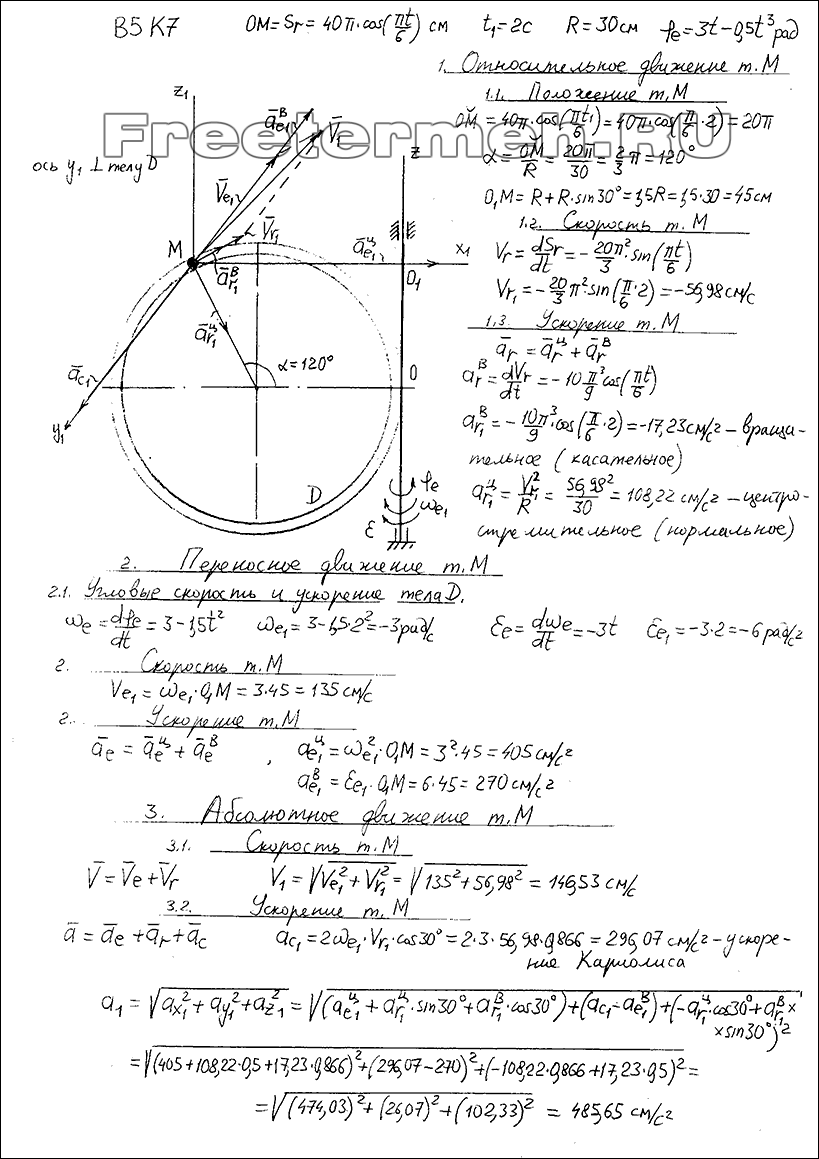 B5 K7 OM = Sr = 40π·cos(πt/6) см t₁=2c R=30см φe=3t−0,5t³ рад
1. Относительное движение т.М
1.1. Положение т.М
OM̆ = 40π·cos(πt₁/6) = 40π·cos(π/6·2) = 20π
α = OM̆/R = 20π/30 = 2/3 π = 120°
O₁M = R+R·sin30° = 1,5R = 1,5·30 = 45см
1.2. Скорость т.М
Vr = dSr/dt = −20π²/3·sin(πt/6)
Vr₁ = −20/3 π²sin(π/6·2) = −56,98 см/с
1.3. Ускорение т.М
ār = ār^ц + ār^в
ar^в = dVr/dt = −10π³/9 cos(πt/6)
ar₁^в = −10π³/9·cos(π/6·2) = −17,23 см/с² – враща-
тельное (касательное)
ar₁^ц = Vr₁²/R = 56,98²/30 = 108,22 см/с² – центро-
стремительное (нормальное)
z₁
āe₁^в
V̄₁
ось y₁ ⊥ телу D
V̄e₁
V̄r₁
z
M
āe₁^ц
x₁
ār₁^в
O₁
ār₁^ц
āc₁
α=120°
O
y₁
D
φe
ωe₁
ε
Freetermeh.RU
2. Переносное движение т.М
2.1. Угловые скорость и ускорение тела D.
ωe = dφe/dt = 3−1,5t² ωe₁ = 3−1,5·2² = −3 рад/с εe = dωe/dt = −3t εe₁ = −3·2 = −6 рад/с²
2. Скорость т.М
Ve₁ = ωe₁·O₁M = 3·45 = 135 см/с
2. Ускорение т.М
āe = āe^ц + āe^в , ae₁^ц = ωe₁²·O₁M = 3²·45 = 405 см/с²
ae₁^в = εe₁·O₁M = 6·45 = 270 см/с²
3. Абсолютное движение т.М
3.1. Скорость т.М
V̄ = V̄e + V̄r V₁ = √(Ve₁² + Vr₁²) = √(135²+56,98²) = 146,53 см/с
3.2. Ускорение т.М
ā = āe + ār + āc ac₁ = 2ωe₁·Vr₁·cos30° = 2·3·56,98·0,866 = 296,07 см/с² – ускоре-
ние Кариолиса
a₁ = √(ax₁² + ay₁² + az₁²) = √((ae₁^ц + ar₁^ц·sin30° + ar₁^в·cos30°) + (ac₁−ae₁^в) + (−ar₁^ц·cos30° + ar₁^в×
×sin30°)²
= √((405+108,22·0,5+17,23·0,866)² + (296,07−270)² + (−108,22·0,866+17,23·0,5)² =
= √((474,03)² + (26,07)² + (102,33)² = 485,65 см/с²